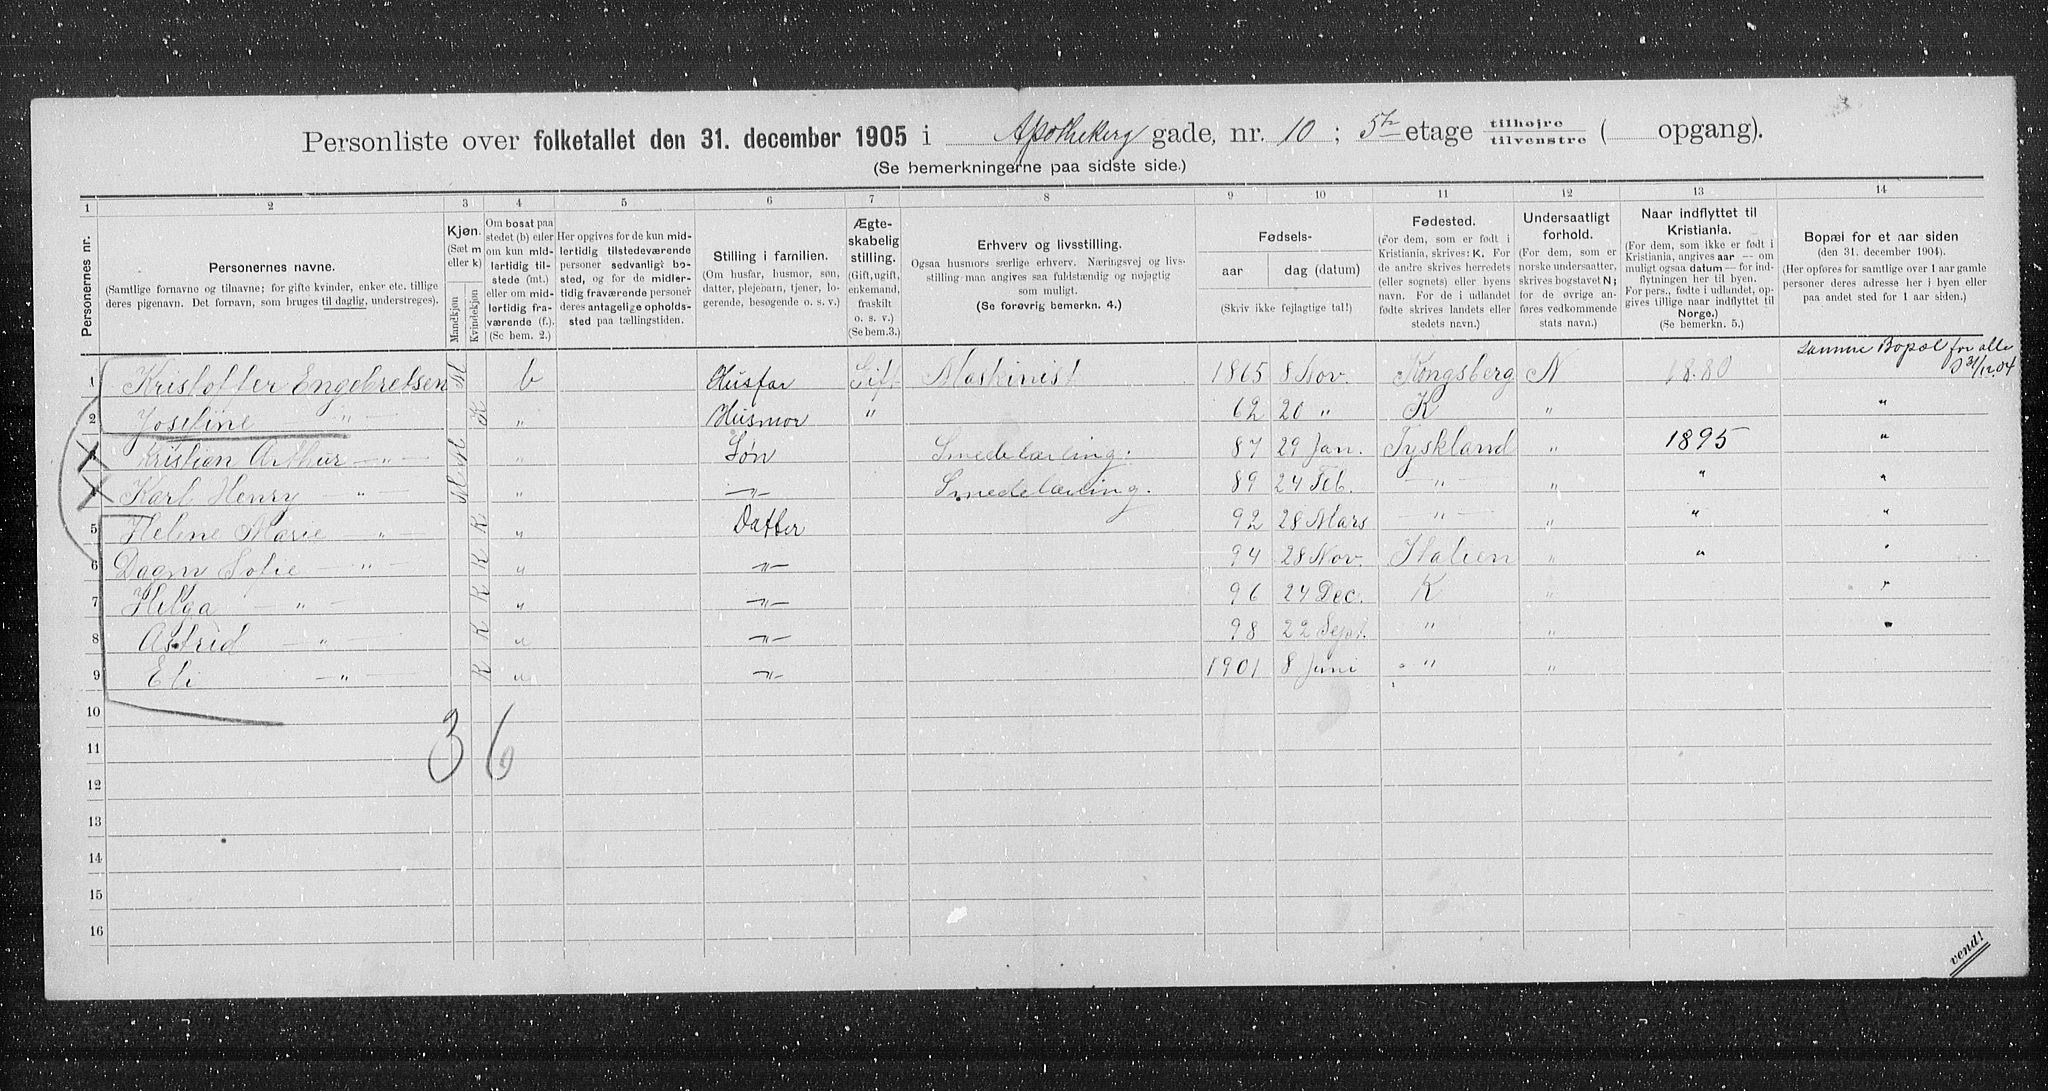 Personliste over folketallet den 31. december 1905 i Apothekerg gade, nr. 10 ; 5te etage tilhøjre tilvenstre ( opgang).
(Se bemerkningerne paa sidste side.)
1 2 3 4 5 6 7 8 9 10 11 12 13 14
Personernes nr.
Personernes navne.
(Samtlige fornavne og tilnavne; for gifte kvinder, enker etc. tillige deres pigenavn. Det fornavn, som bruges til daglig, understreges).
Kjøn.
(Sæt m eller k)
Mandkjøn
Kvindekjøn
Om bosat paa stedet (b) eller om kun midlertidig tilstede (mt.) eller om midlertidig fraværende (f.).
(Se bem. 2.)
Her opgives for de kun midlertidig tilstedeværende personer sedvanligt bosted, og for de midlertidig fraværende personer deres antagelige opholdssted paa tællingstiden.
Stilling i familien.
(Om husfar, husmor, søn, datter, plejebarn, tjener, logerende, besøgende o. s. v.)
Ægteskabelig stilling.
(Gift, ugift, enkemand, fraskilt o. s. v.)
(Se bem.3.)
Erhverv og livsstilling.
Ogsaa husmors særlige erhverv. Næringsvej og livsstilling maa angives saa fuldstændig og nøjagtig som muligt.
(Se forøvrig bemerkn. 4.)
Fødsels-
aar dag (datum)
(Skriv ikke fejlagtige tal!)
Fødested.
(For dem, som er født i Kristiania, skrives: K. For de andre skrives herredets (eller sognets) eller byens navn. For de i udlandet fødte skrives landets eller stedets navn.)
Undersaatligt forhold.
(For dem, som er norske undersaatter, skrives bogstavet N; for de øvrige anføres vedkommende stats navn.)
Naar indflyttet til Kristiania.
(For dem, som ikke er født i Kristiania, angives aar — om muligt ogsaa datum — for indflytningen her til byen. For pers., fødte i udlandet, opgives tillige naar indflyttet til Norge.)
(Se bemerkn. 5.)
Bopæl for et aar siden
(den 31. december 1904).
(Her opføres for samtlige over 1 aar gamle personer deres adresse her i byen eller paa andet sted for 1 aar siden.)
Samme Bopæl for alle 31/12.04
1 Kristoffer Engebretsen M b Husfar Gift Maskinist 1865 8 Nov. Kongsberg N 1880
2 Josefine — " — K " Husmor " 62 20 " K " "
3 Kristian Arthur — " — M " Søn Smedelærling. 87 29 Jan. Tyskland " 1895 "
4 Karl Henry — " — M " — " — Smedelærling. 89 24 Feb. — " — " " "
5 Helene Marie " — K " Datter 92 28 Mars — " — " " "
6 Dagny Sofie — " — K " — " — 94 28 Nov. Italien " " "
7 Helga — " — K " — " — 96 24 Dec. K " "
8 Astrid — " — K " — " — 98 22 Sept. " " "
9 Eli — " — K " — " — 1901 8 Juni " "
10
3 6
11
12
13
14
15
16
vend!